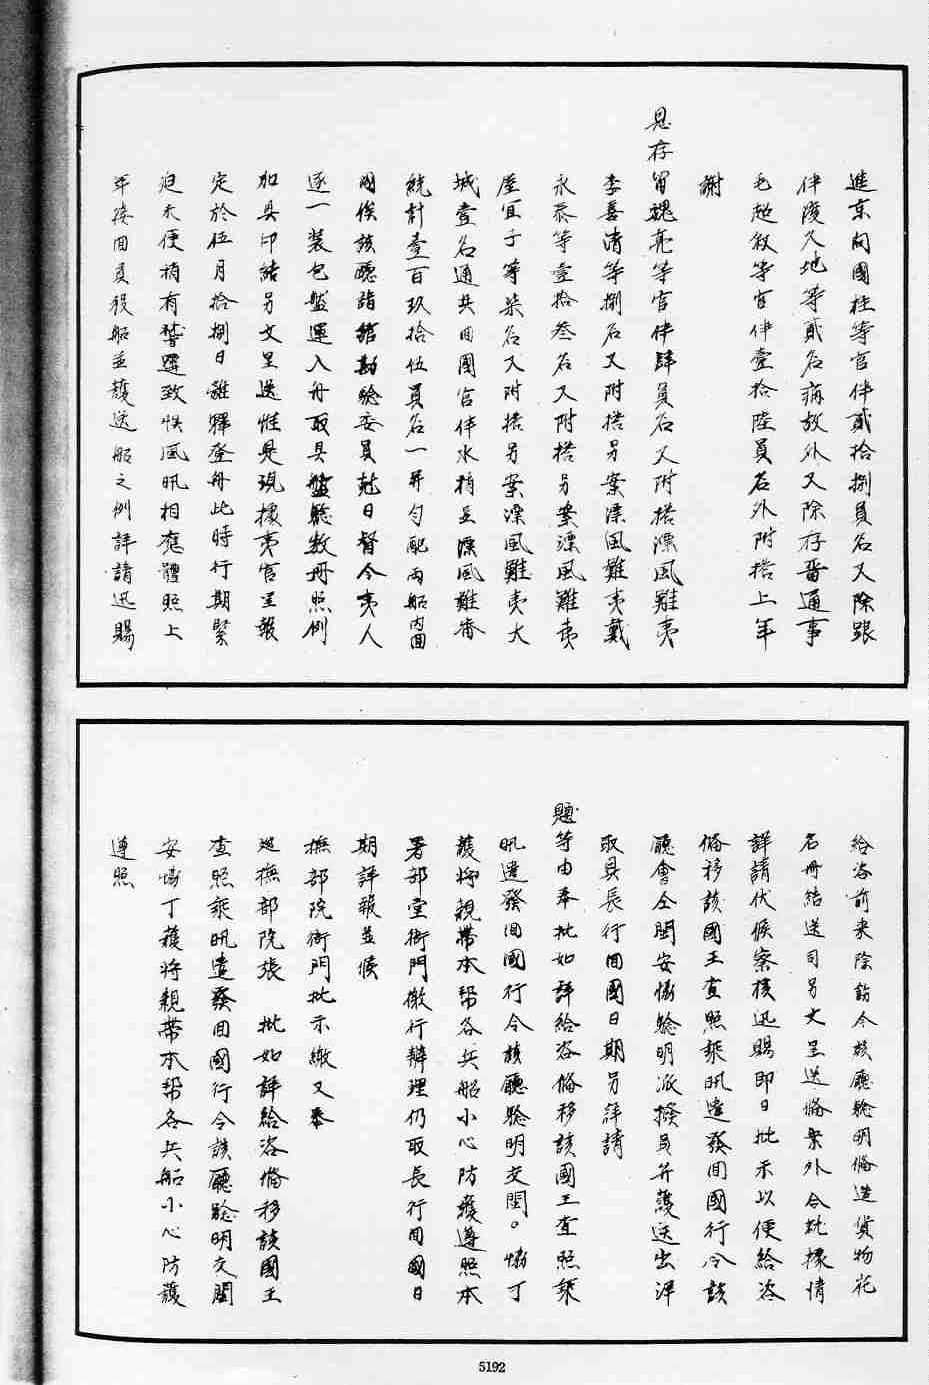 進京向國柱等官伴貳拾捌員名又除跟
伴陵久地等貳名病故外又除存畨通事
毛超敘等官伴壹拾陸員名外附搭上年
謝
恩存留魏亮等官伴肆員名又附搭漂風難夷
李喜清等捌名又附搭另案漂風難夷戴
永泰等壹拾叁名又附搭另案漂風難夷
屋冝子等柒名又附搭另案漂風難夷大
城壹名通共回國官伴水梢並漂風難畨
統計壹百玖拾伍員名一并勻配兩船内回
國俟該廳詣舘勘驗委員尅日督令夷人
逐一裝包盤運入舟取具盤驗数冊照例
加具印結另文呈送惟是現據夷官呈報
定於伍月拾捌日離驛登舟此時行期緊
迫未便稍有躭遲致悮風帆相應體照上
年接回員役船並護送船之例詳請迅賜
給咨前来除飭令該廳驗明俻造貨物花
名冊結送司另文呈送俻案外合就據情
詳請伏候察核迅賜即日批示以便給咨
俻移該國王查照乘帆遣發回國行令該
廳會仝閩安協驗明派撥員弁護送出洋
取具長行回國日期另詳請
題等由奉批如詳給咨俻移該國王查照乘
帆遣發回國行令該廳驗明交閩。協丁
護將親帶本幇各兵船小心防護遵照本
署部堂衙門檄行辦理仍取長行回國日
期詳報並候
撫部院衙門批示繳又奉
廵撫部院張 批如詳給咨俻移該國王
查照乘帆遣發回國行令該廳驗明交閩
安協丁護將親帶本幇各兵船小心防護
遵照
5192